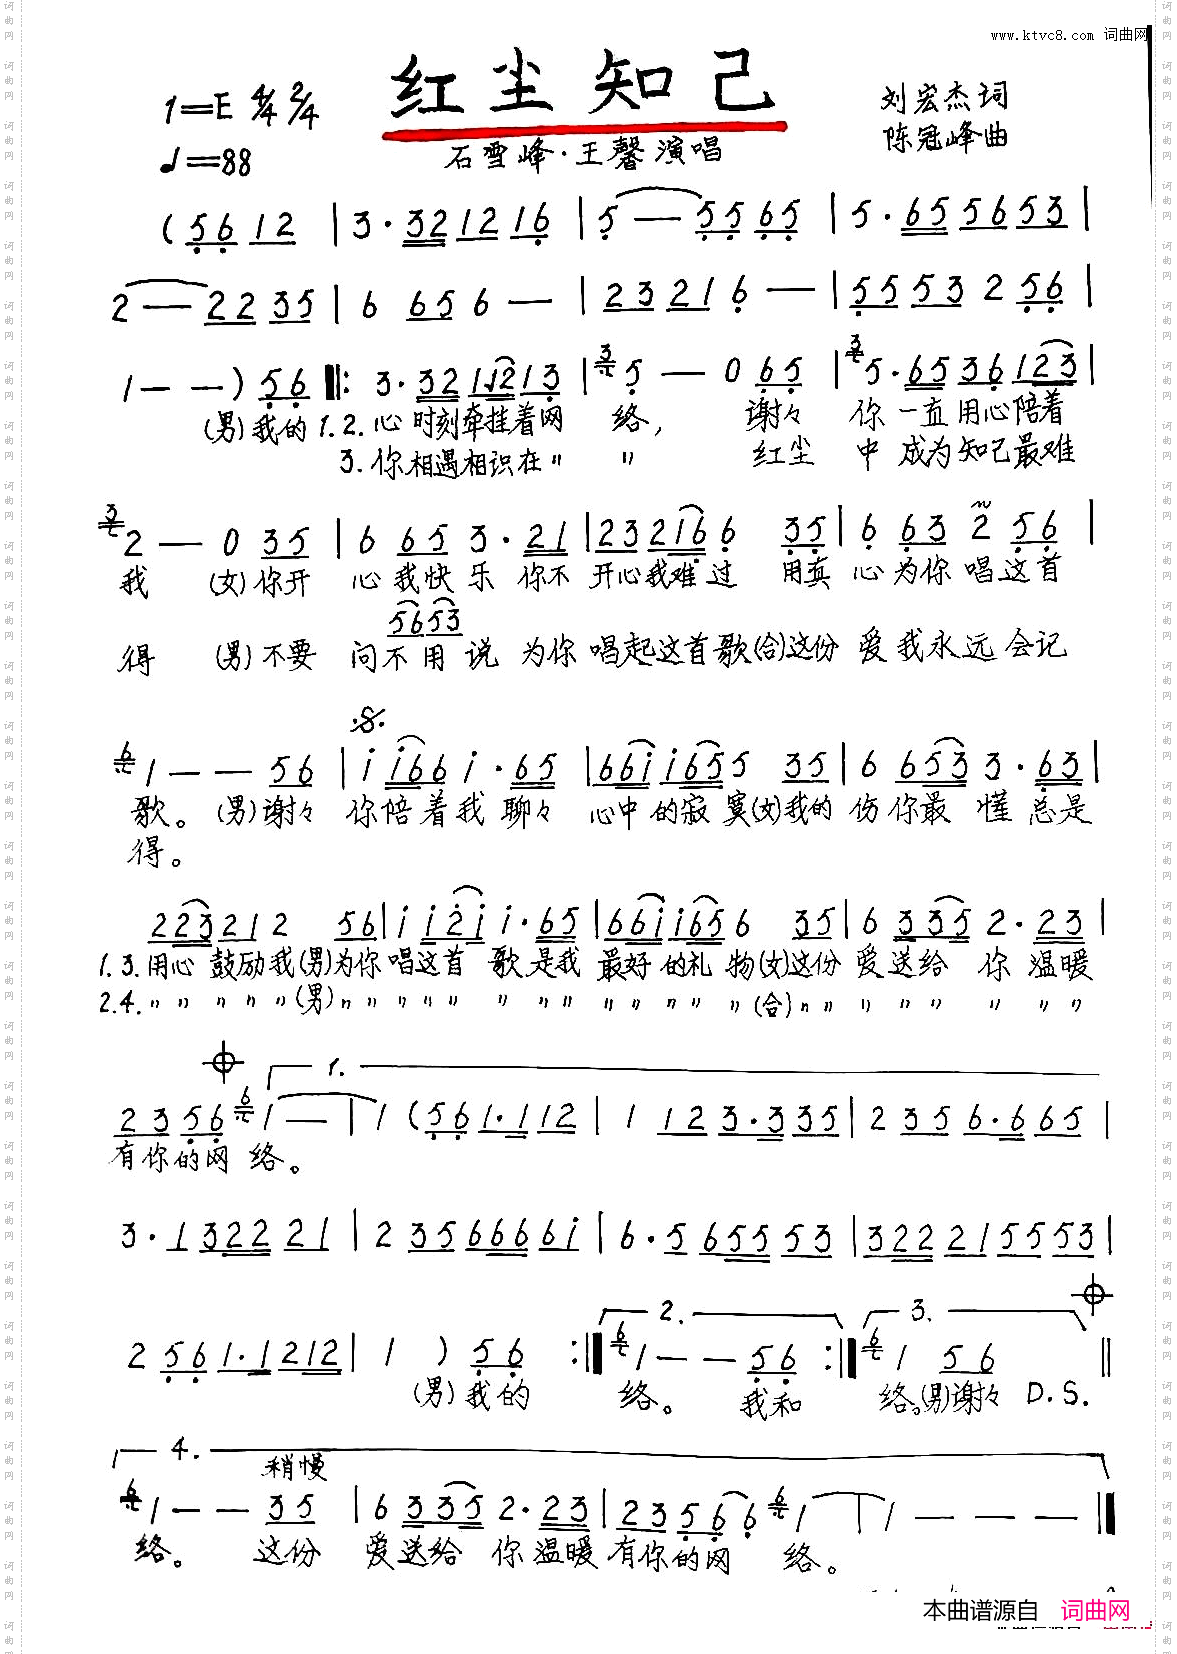 www.ktvc8.com 词曲网
红尘知己
1=E 4/4 2/4
刘宏杰词
陈冠峰曲
♩=88
石雪峰·王馨演唱
(5612 | 3·321216 | 5—5565 | 5·655653 |
2—2235 | 6 656— | 23216— | 5553 2 56 |
1——)56 |: 3·3211213 | 5—065 | 5·6536123 |
(男)我的 1.2.心时刻牵挂着网 络, 谢々 你一直用心陪着
3.你相遇相识在〃 〃 红尘 中成为知己最难
2—035 | 6 65 3·21 | 232166 35 | 6 63 2 56 |
我 (女)你开 心我快乐 你不 开心我难过 用真 心为你唱这首
5653
得 (男)不要 问不用说 为你 唱起这首歌(合)这份 爱我永远会记
1——56 | i i66i·65 | 66ii655 35 | 6 653 3·63 |
歌。(男)谢々 你陪着我 聊々 心中的寂寞(女)我的 伤你最 懂总是
得。
223212 56 | i i2i i·65 | 66ii656 35 | 6 335 2·23 |
1.3.用心鼓励我(男)为你唱这首 歌是我 最好的礼物(女)这份 爱送给 你温暖
2.4.〃〃〃〃〃(男)〃〃〃〃〃 〃〃〃 〃〃〃〃〃(合)〃〃 〃〃〃 〃 〃〃
1.
2356 1— | 1(561·112 | 1 123·335 | 2356·665 |
有你的网 络。
3·1322221 | 235666 6i | 6·5655553 | 322215553 |
2. 3.
2 561·1212 | 1 )56 :| 1——56 :| 1 56 ‖
(男)我的 络。 我和 络。(男)谢々 D.S.
4.
稍慢
1——35 | 6 335 2·23 | 235661 | 1———
络。 这份 爱送给 你温暖 有你的网 络。
本曲谱源自 词曲网